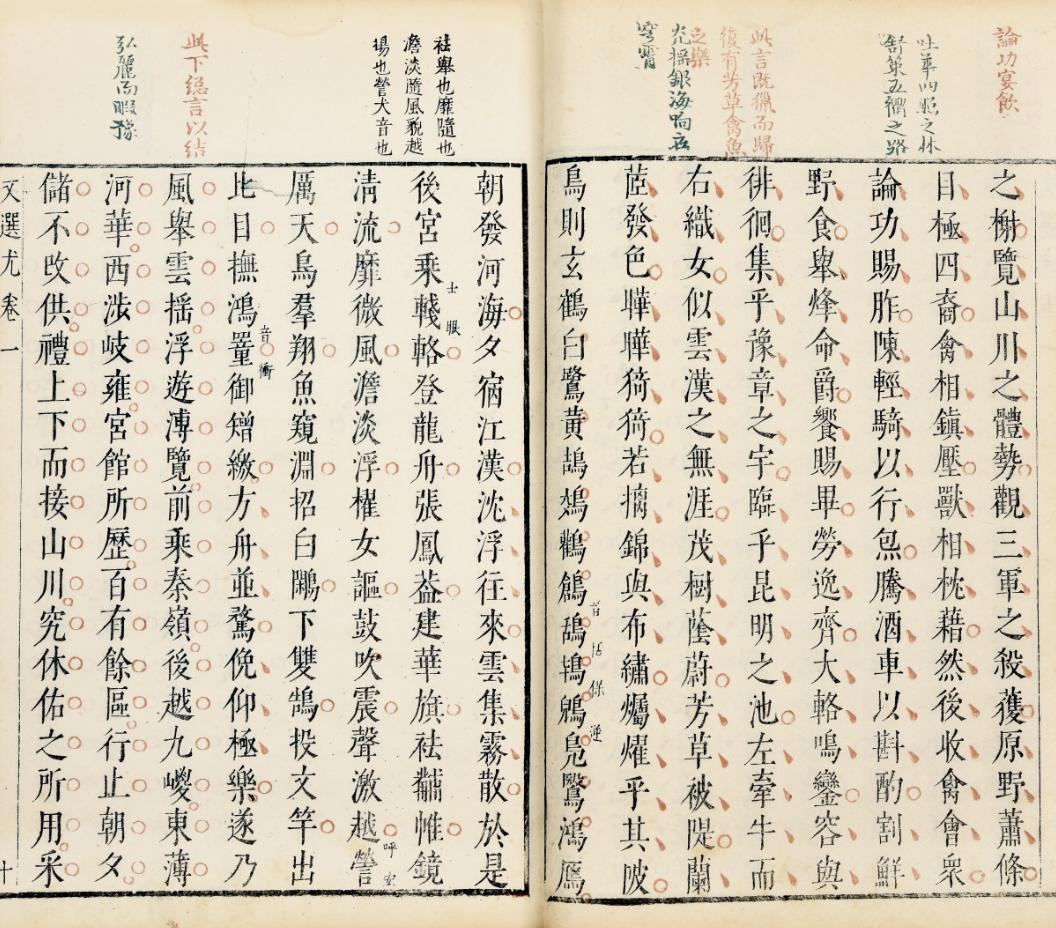 論功宴飲
吐華四照之林
舒策五衢之路
此言既獵而歸
復有芳草禽魚
之樂
光搖銀海响在
穹霄
之榭覽山川之體勢觀三軍之殺獲原野蕭條
目極四裔禽相鎮壓獸相枕藉然後收禽會衆
論功賜胙陳輕騎以行炰騰酒車以斟酌割鮮
野食舉烽命爵饗賜畢勞逸齊大輅鳴鑾容與
徘徊集乎豫章之宇臨乎昆明之池左牽牛而
右織女似雲漢之無涯茂樹蔭蔚芳草被隄蘭
茝發色曄曄猗猗若摛錦與布繡爥燿乎其陂
鳥則玄鶴白鷺黃鵠鵁鸛鶬鴰鴇鶂鳧鷖鴻鴈
括保逆
祛舉也靡隨也
澹淡隨風貌越
揚也謍大音也
此下總言以結
弘麗而暇豫
朝發河海夕宿江漢沈浮往來雲集霧散於是
後宮乘輚輅登龍舟張鳳葢建華旗祛黼帷鏡
士眼
清流靡微風澹淡浮櫂女謳鼓吹震聲激越謍
呼宏
厲天鳥羣翔魚窺淵招白鷴下雙鵠投文竿出
比目撫鴻罿御矰繳方舟並鶩俛仰極樂遂乃
音衝
風舉雲搖浮遊溥覽前乘秦嶺後越九嵕東薄
河華西涉岐雍宮館所歷百有餘區行止朝夕
儲不改供禮上下而接山川究休佑之所用采
文選尤 卷一 十